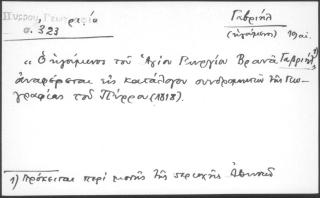 Πύρρου, Γεωγραφία
σ. 323
Γαβριήλ
(ηγούμενος) 19 αι.
"Ὁ ἡγούμενος τοῦ Ἁγίου Γεωργίου Βρανᾶ Γαβριήλ 1)
ἀναφέρεται εἰς κατάλογον συνδρομητῶν τῆς Γεω-
γραφίας τοῦ Πύρρου (1818).
1) Πρόκειται περί μονῆς τῆς περιοχῆς Ἀθηνῶν